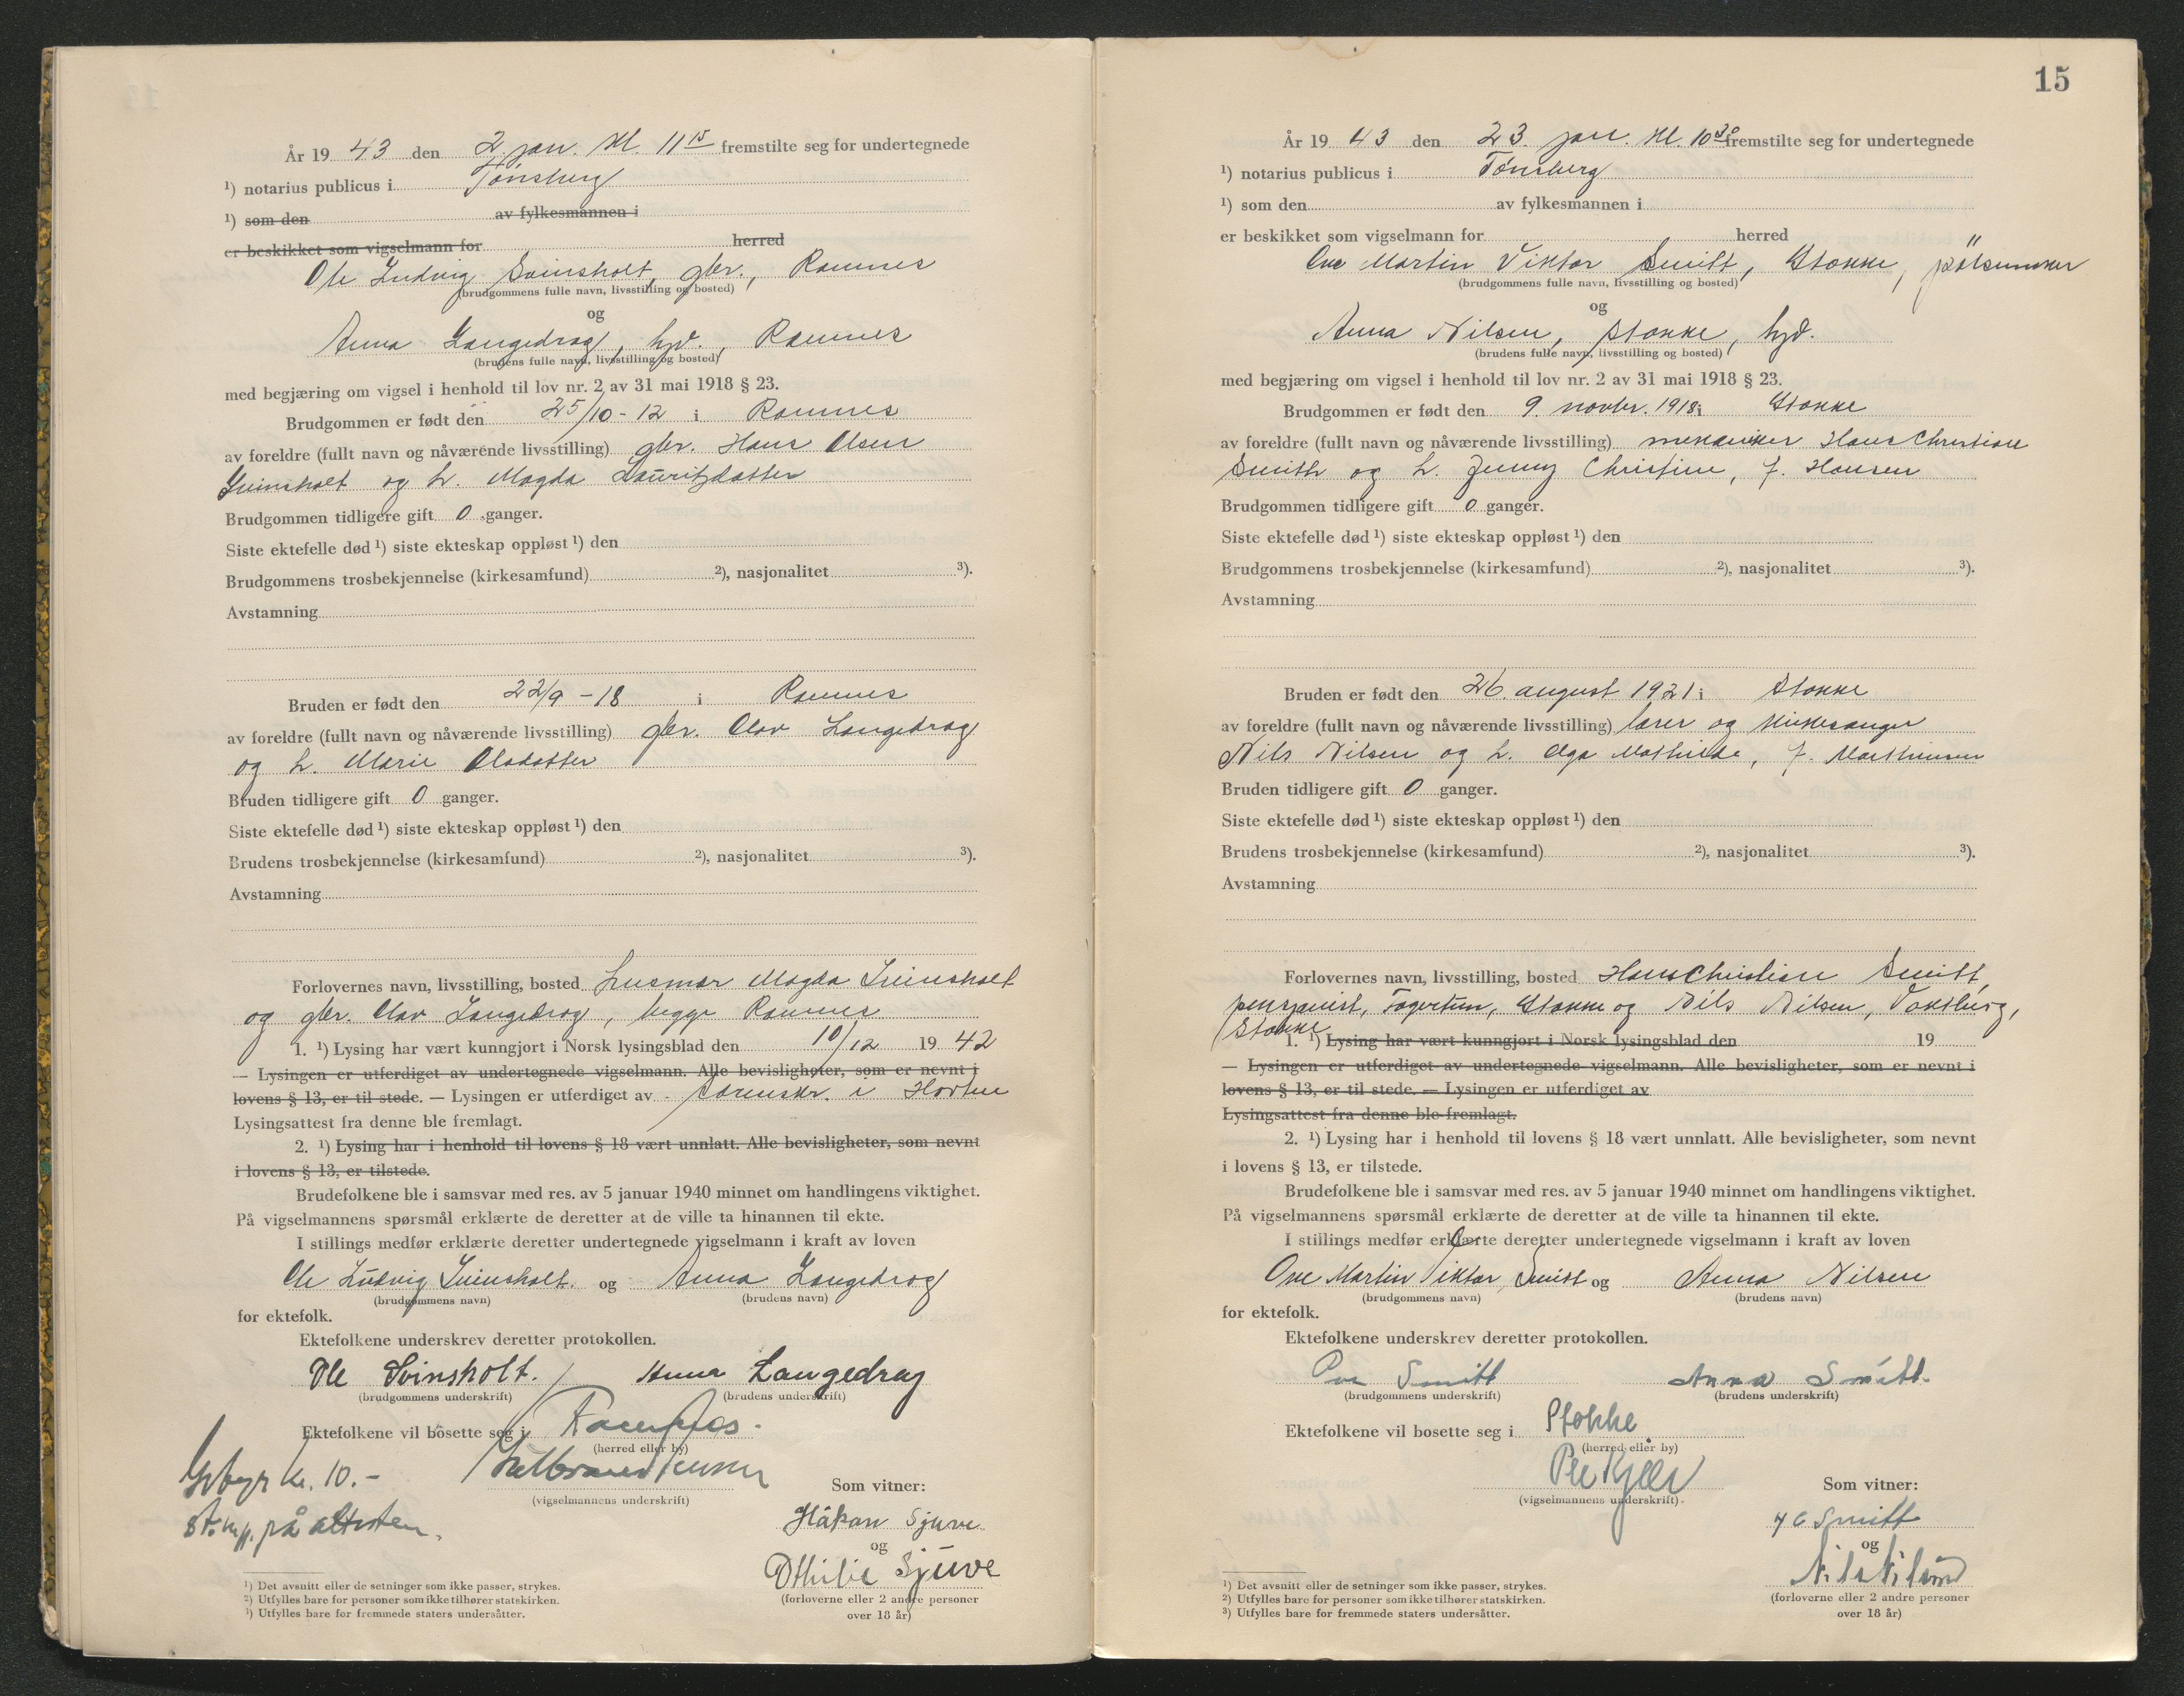 År 19 43 den 2. jan. kl. 11 15 fremstilte seg for undertegnede
¹) notarius publicus i Tønsberg
¹) som den av fylkesmannen i
er beskikket som vigselmann for herred
Ole Ludvig Svinsholt, gbr., Ramnes
(brudgommens fulle navn, livsstilling og bosted)
og
Anna Langedrag, hjd., Ramnes
(brudens fulle navn, livsstilling og bosted)
med begjæring om vigsel i henhold til lov nr. 2 av 31 mai 1918 § 23.
Brudgommen er født den 25/10 - 12 i Ramnes
av foreldre (fullt navn og nåværende livsstilling) gbr. Hans Olsen
Svinsholt og h. Magda Lauritzdatter
Brudgommen tidligere gift 0 ganger.
Siste ektefelle død ¹) siste ekteskap oppløst ¹) den
Brudgommens trosbekjennelse (kirkesamfund) ²), nasjonalitet ³).
Avstamning
Bruden er født den 22/9 - 18 i Ramnes
av foreldre (fullt navn og nåværende livsstilling) gbr. Olav Langedrag
og h. Marie Olsdatter
Bruden tidligere gift 0 ganger.
Siste ektefelle død ¹) siste ekteskap oppløst ¹) den
Brudens trosbekjennelse (kirkesamfund) ²), nasjonalitet ³).
Avstamning
Forlovernes navn, livsstilling, bosted husmor Magda Svinsholt
og gbr. Olav Langedrag, begge Ramnes
1. ¹) Lysing har vært kunngjort i Norsk lysingsblad den 10/12 19 42
— Lysingen er utferdiget av undertegnede vigselmann. Alle bevisligheter, som er nevnt i
lovens § 13, er til stede. — Lysingen er utferdiget av sorenskr. i Horten
Lysingsattest fra denne ble fremlagt.
2. ¹) Lysing har i henhold til lovens § 18 vært unnlatt. Alle bevisligheter, som nevnt
i lovens § 13, er tilstede.
Brudefolkene ble i samsvar med res. av 5 januar 1940 minnet om handlingens viktighet.
På vigselmannens spørsmål erklærte de deretter at de ville ta hinannen til ekte.
I stillings medfør erklærte deretter undertegnede vigselmann i kraft av loven
Ole Ludvig Svinsholt. og Anna Langedrag
(brudgommens navn) (brudens navn)
for ektefolk.
Ektefolkene underskrev deretter protokollen.
Ole Svinsholt. Anna Langedrag
(brudgommens underskrift) (brudens underskrift)
Ektefolkene vil bosette seg i Ramnes.
(herred eller by)
(vigselmannens underskrift)
Gebyr kr. 10.-
på attesten.
Som vitner:
Håkon Sjuve
og
Othilie Sjuve
(forloverne eller 2 andre personer
over 18 år)
¹) Det avsnitt eller de setninger som ikke passer, strykes.
²) Utfylles bare for personer som ikke tilhører statskirken.
³) Utfylles bare for fremmede staters undersåtter.
15
År 19 43 den 23. jan. kl. 10 30 fremstilte seg for undertegnede
¹) notarius publicus i Tønsberg
¹) som den av fylkesmannen i
er beskikket som vigselmann for herred
Ove Martin Viktor Smitt, Stokke, pølsemaker
(brudgommens fulle navn, livsstilling og bosted)
og
Anna Nilsen, Stokke, hjd.
(brudens fulle navn, livsstilling og bosted)
med begjæring om vigsel i henhold til lov nr. 2 av 31 mai 1918 § 23.
Brudgommen er født den 9. novbr. 1918 i Stokke
av foreldre (fullt navn og nåværende livsstilling) mekaniker Hans Christian
Smitt og h. Jenny Christine, f. Hansen
Brudgommen tidligere gift 0 ganger.
Siste ektefelle død ¹) siste ekteskap oppløst ¹) den
Brudgommens trosbekjennelse (kirkesamfund) ²), nasjonalitet ³).
Avstamning
Bruden er født den 26. august 1921 i Stokke
av foreldre (fullt navn og nåværende livsstilling) lærer og kirkesanger
Nils Nilsen og h. Olga Mathilde, f. Mathisen
Bruden tidligere gift 0 ganger.
Siste ektefelle død ¹) siste ekteskap oppløst ¹) den
Brudens trosbekjennelse (kirkesamfund) ²), nasjonalitet ³).
Avstamning
Forlovernes navn, livsstilling, bosted Hans Christian Smitt,
pensjonist, Fagertun, Stokke og Nils Nilsen, Vonsberg,
Stokke
1. ¹) Lysing har vært kunngjort i Norsk lysingsblad den 19
— Lysingen er utferdiget av undertegnede vigselmann. Alle bevisligheter, som er nevnt i
lovens § 13, er til stede. — Lysingen er utferdiget av
Lysingsattest fra denne ble fremlagt.
2. ¹) Lysing har i henhold til lovens § 18 vært unnlatt. Alle bevisligheter, som nevnt
i lovens § 13, er tilstede.
Brudefolkene ble i samsvar med res. av 5 januar 1940 minnet om handlingens viktighet.
På vigselmannens spørsmål erklærte de deretter at de ville ta hinannen til ekte.
I stillings medfør erklærte deretter undertegnede vigselmann i kraft av loven
Ove Martin Viktor Smitt og Anna Nilsen
(brudgommens navn) (brudens navn)
for ektefolk.
Ektefolkene underskrev deretter protokollen.
Ove Smitt Anna Smitt.
(brudgommens underskrift) (brudens underskrift)
Ektefolkene vil bosette seg i Stokke
(herred eller by)
Per Kjær
(vigselmannens underskrift)
Som vitner:
H C Smitt
og
Nils Nilsen
(forloverne eller 2 andre personer
over 18 år)
¹) Det avsnitt eller de setninger som ikke passer, strykes.
²) Utfylles bare for personer som ikke tilhører statskirken.
³) Utfylles bare for fremmede staters undersåtter.